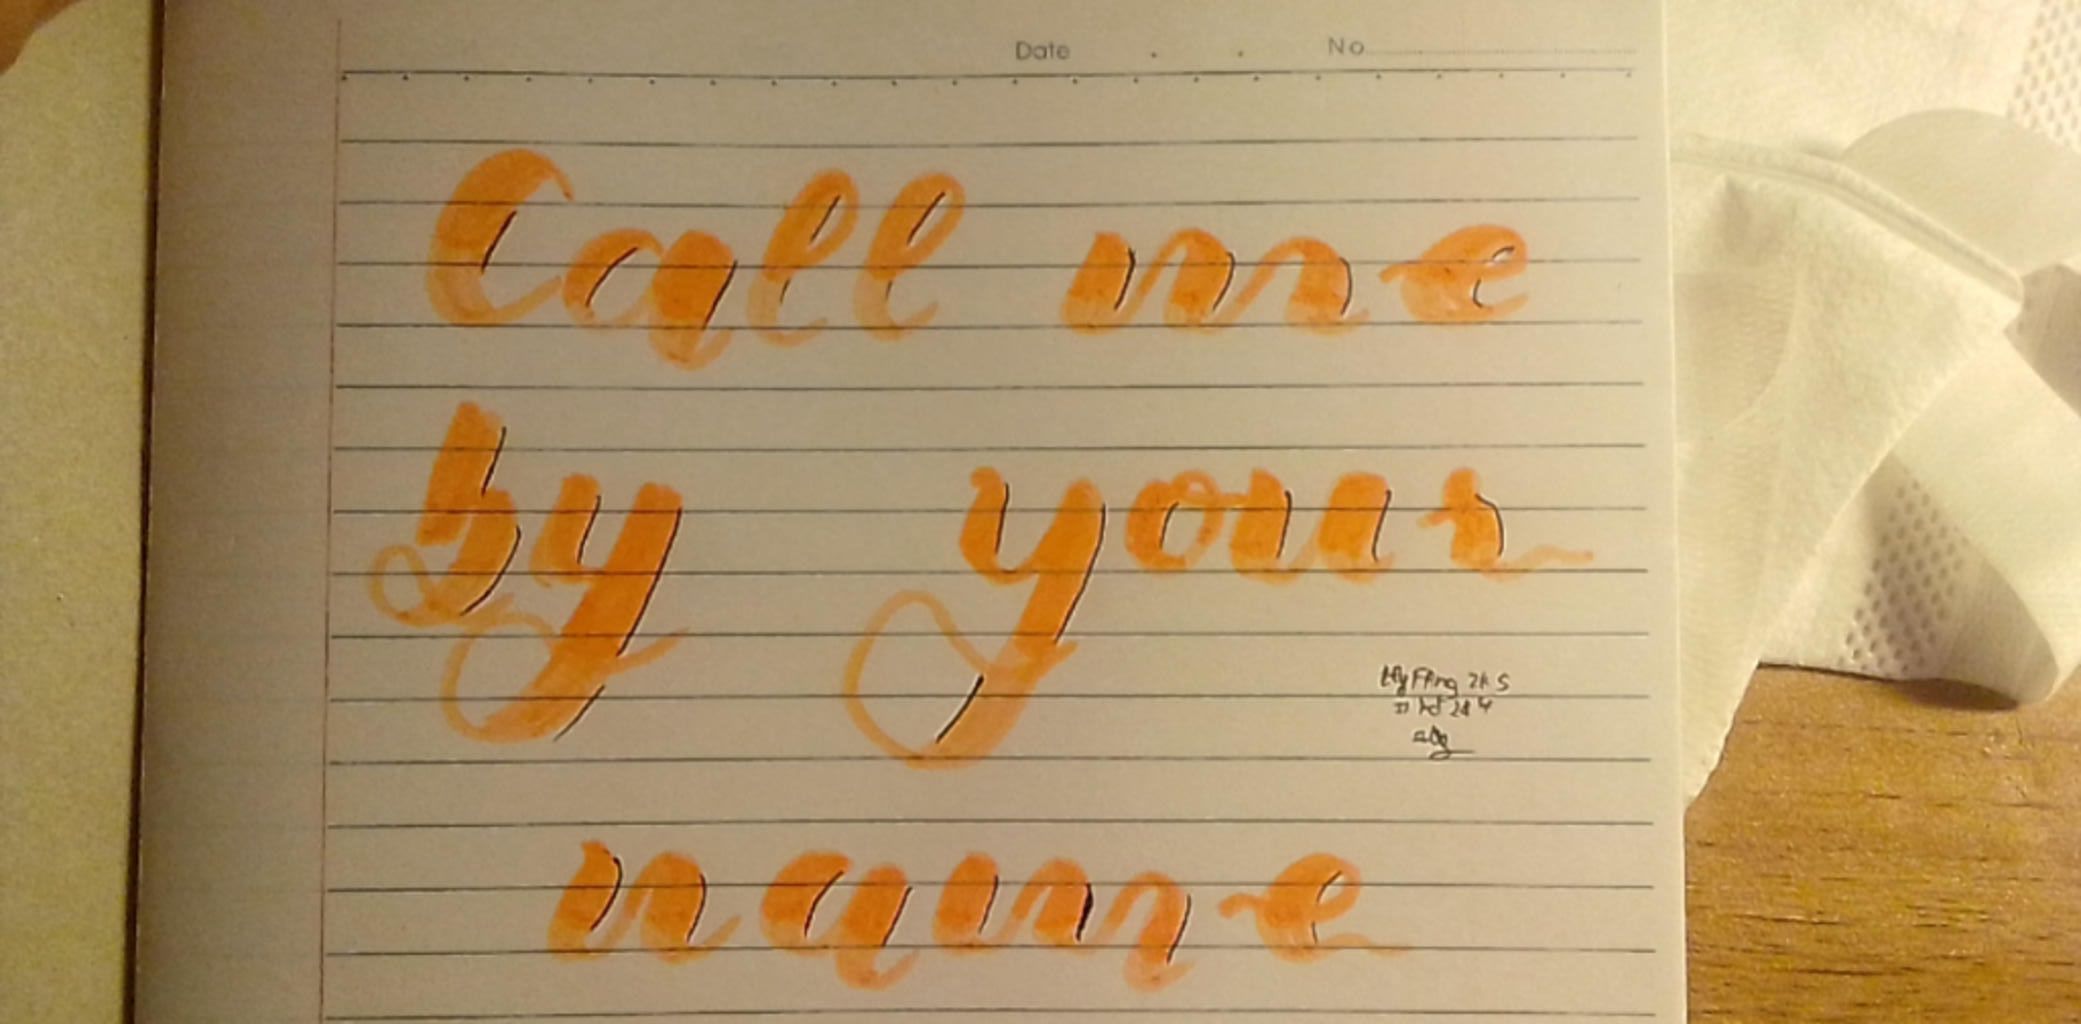 Date . . No
Call me
by your
name